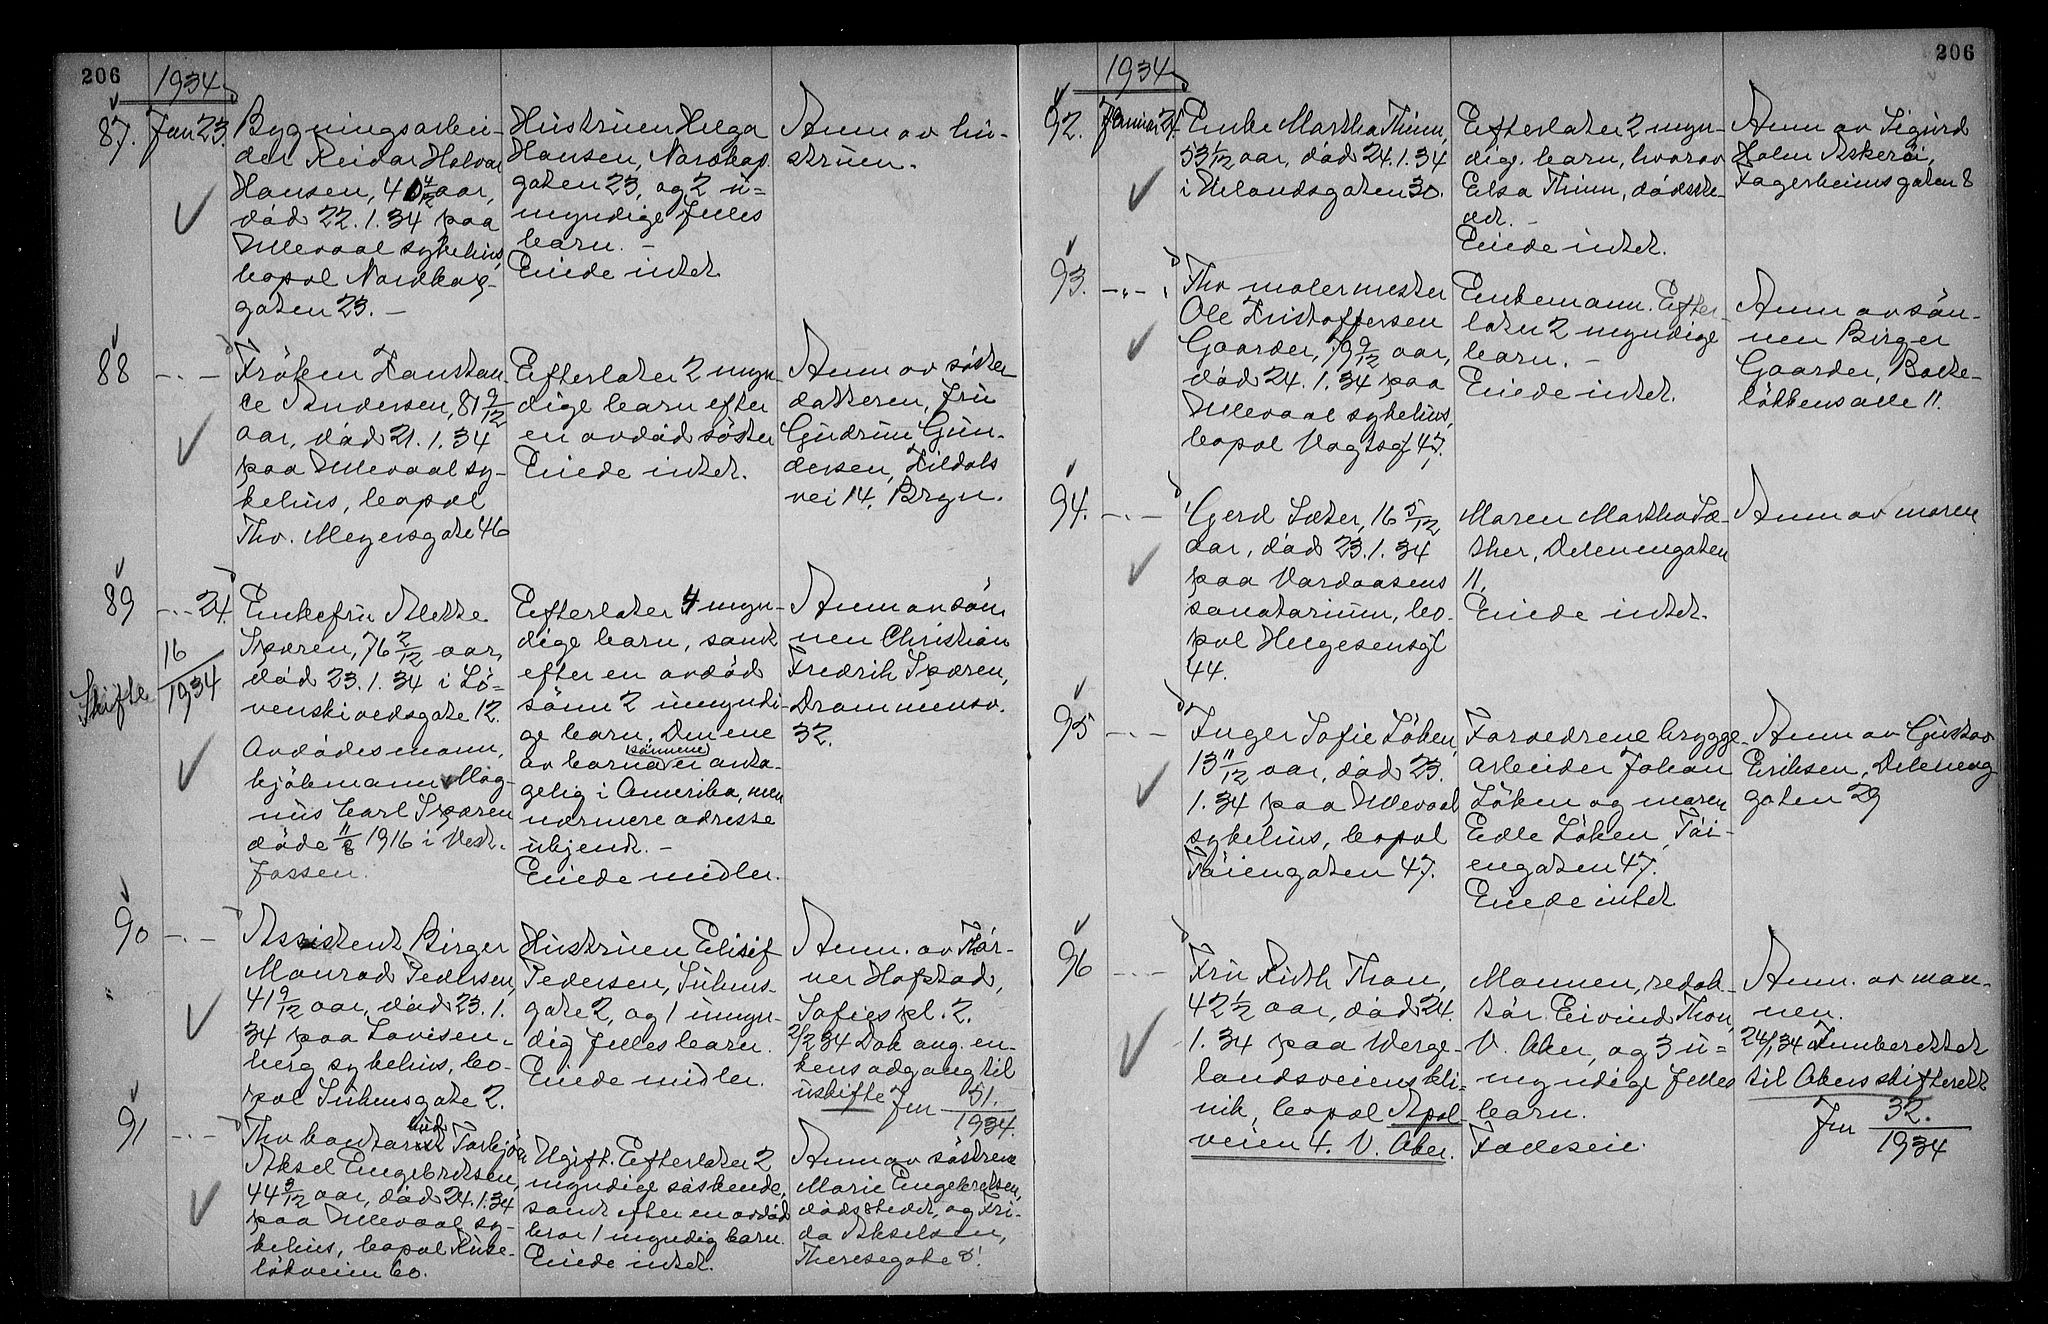 206
1934
87. Jan 23.
Bygningsarbei-
der Reidar Halvar
Hansen, 40 4/12 aar,
död 22.1.34 paa
Ullevaal sykehus,
bopæl Nordkap-
gaten 23. —
Hustruen Helga
Hansen, Nordkap
gaten 23, og 2 u=
myndige fælles
barn. —
Eiede intet.
Anm av hu-
struen.
88 —.—
Fröken Konstan-
ce Andersen, 81 9/12
aar, död 21.1.34
paa Ullevaal sy-
kehus, bopæl
Thv. Meyersgate 46
Efterlater 2 myn-
dige barn efter
en avdöd söster
Eiede intet.
Anm av söster
datteren, fru
Gudrun Gun-
dersen, Kildals
vei 14, Bryn.
89 -.- 24.
Skifte 16/1934
Enkefru Alette
Sparen, 76 2/12 aar,
död 23.1.34 i Lö=
venskioldsgate 12.
Avdödes mann,
kjöbmann Mag-
nus Carl Sparen
döde 11/8 1916 i Vest-
fossen.
Efterlater 4 myn-
dige barn, samt
efter en avdöd
sönn 2 umyndi-
ge barn. Den ene
av sönnene er anta-
gelig i Amerika, men
nærmere adresse
ukjent. —
Eiede midler.
Anm av sön
nen Christian
Fredrik Sparen,
Drammensv.
32.
90 —.—
Assistent Birger
Monrad Pedersen,
41 9/12 aar, död 23.1.
34 paa Lovisen-
berg sykehus, bo-
pæl Suhmsgate 2.
Hustruen Elisif
Pedersen, Suhms-
gate 2, og 1 umyn-
dig fælles barn.
Eiede midler.
Anm. av Thor-
ner Hofstad,
Sofies pl. 2.
2/2 34 Dok ang. en-
kens adgang til
uskifte Jnr 51./1934.
91 —.—
Thv kontorbud Torbjörn
Aksel Engebretsen,
44 3/12 aar, död 24.1.34
paa Ullevaal sy-
kehus, bopæl
lökveien 60.
Ugift. Efterlater 2
myndige söskende,
samt efter en avdöd
bror 1 myndig barn.
Eiede intet.
Anm av söstrene
Marie Engebretsen,
dödsstedet, og Fri-
da Akselsen,
Theresegate 8.
206
1934
92. Januar 24.
Enke Martha Thunn,
53 1/12 aar, död 24.1.34
i Uelandsgaten 30.
Efterlater 2 myn-
dige barn, hvorav
Elsa Thunn, dödsste-
det. —
Eiede intet.
Anm av Sigurd
Holm Askeröi,
Fagerheimsgaten 8
93. —.—
Thv malermester
Ole Kristoffersen
Gaarder, 79 9/12 aar,
död 24.1.34 paa
Ullevaal sykehus,
bopæl Vogtsgt 47.
Enkemann. Efter-
later 2 myndige
barn. —
Eiede intet.
Anm av sön-
nen Birger
Gaarder, Bakke-
lökkens alle 11.
94. —.—
Gerd Sæter, 16 5/12
aar, död 23.1.34
paa Vardaasens
sanatorium, bo-
pæl Helgesensgt
44.
Moren Martha Sæ-
ther, Delenengaten
11.
Eiede intet.
Anm av moren
95 —.—
Inger Sofie Löken,
13 11/12 aar, död 23.
1.34 paa Ullevaal
sykehus, bopæl
Töiengaten 47.
Forældrene brygge-
arbeider Johan
Löken og moren
Edle Löken, Töi-
engaten 47.
Eiede intet
Anm av Gustav
Eriksen, Deleneng
gaten 29
96 —.—
Fru Ruth Thon,
42 1/2 aar, död 24.
1.34 paa Werge-
landsveiens kli-
nik, bopæl Apal-
veien 4. V. Aker.
Mannen, redak-
tör Eivind Thon,
V. Aker, og 3 u=
myndige fælles
barn.
Fælleseie.
Anm. av man-
nen.
24/1 34 Innberettet
til Akers skifterett
Jnr 32./1934